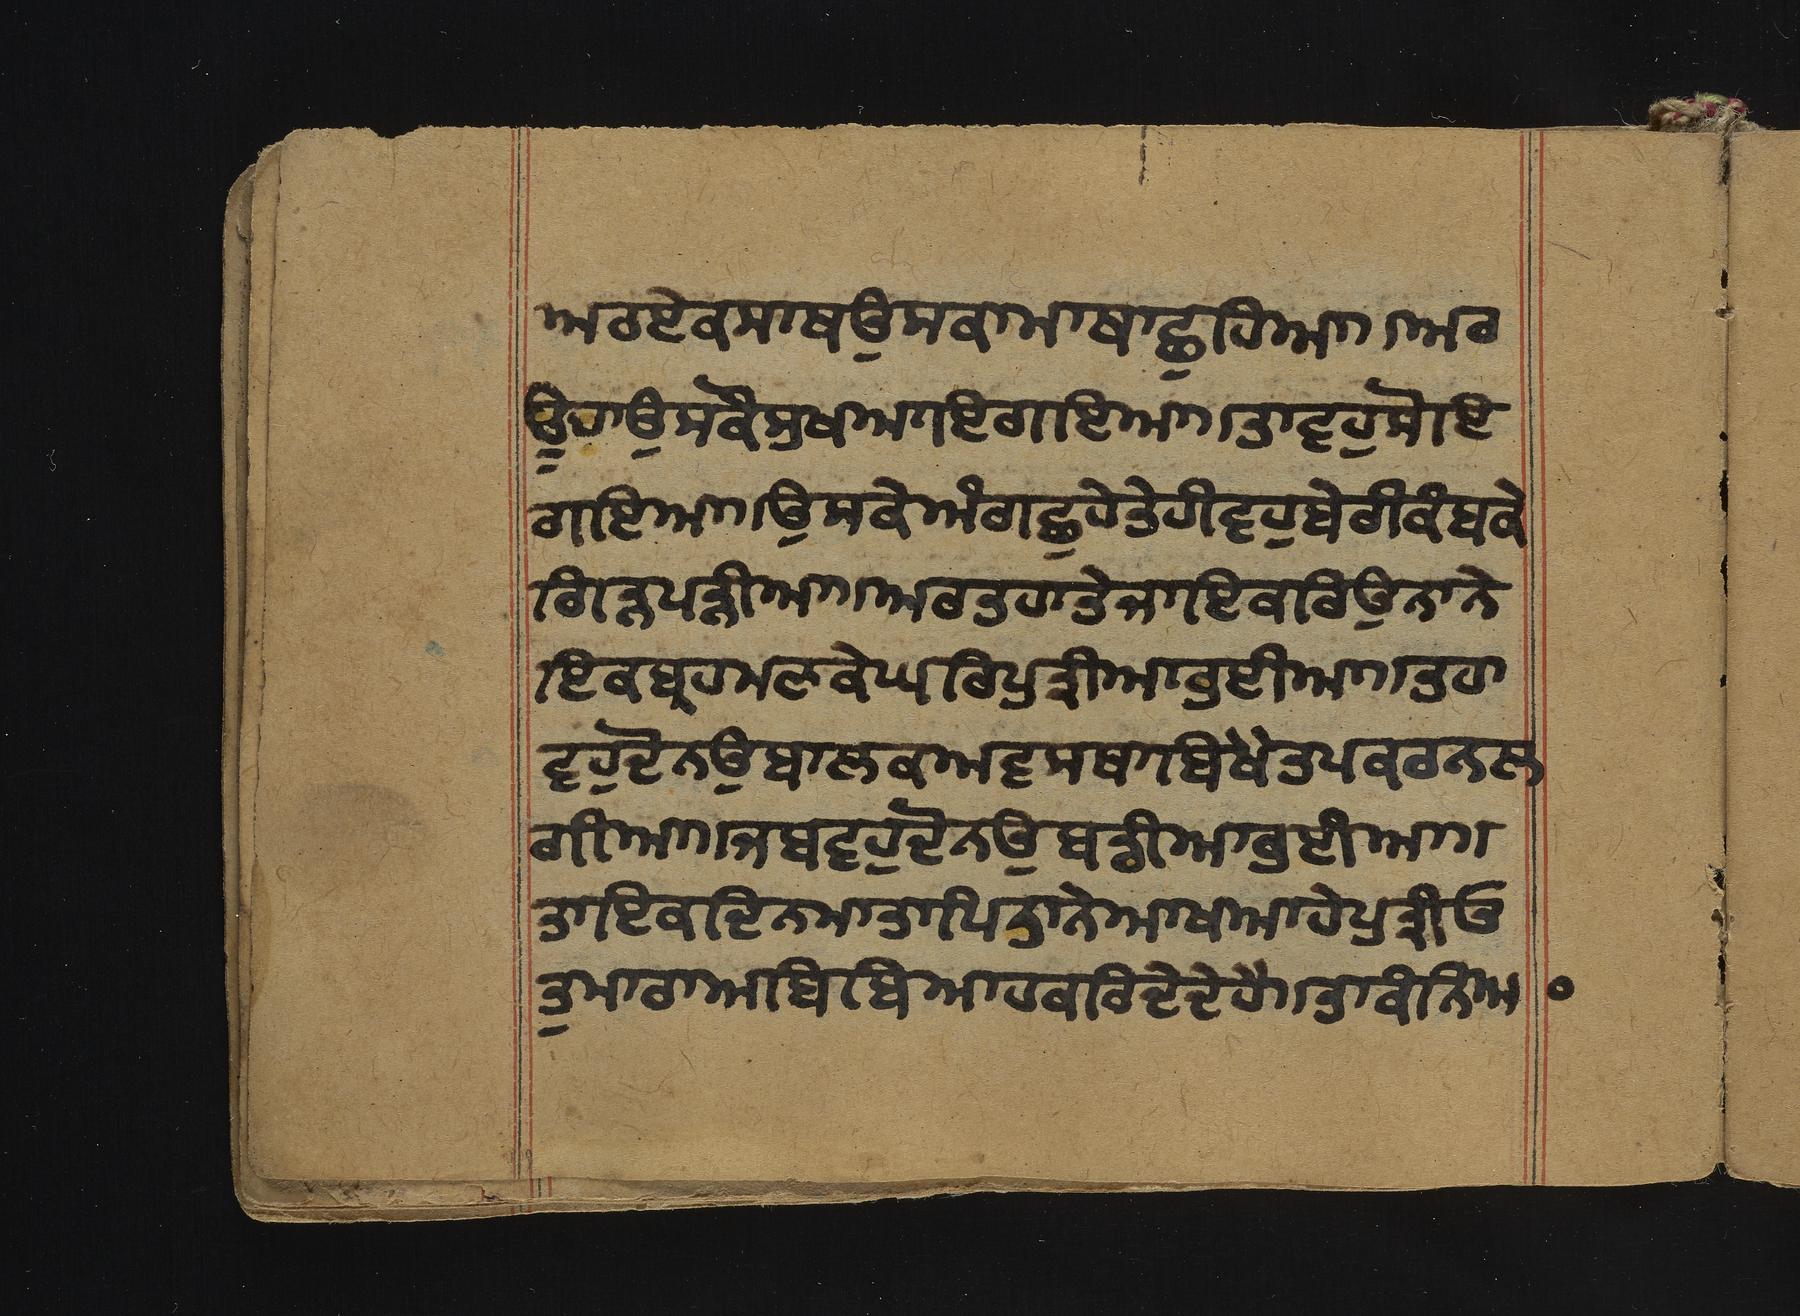 ਅਰਏਕਸਾਖਉਸਕਾਮਾਖਾਛੁਹਿਆ।ਅਰ
ਉਹਾਉਸਕੌਸੁਖਆਇਗਇਆ।ਤਾਵਹੁਸੋਇ
ਗਇਆ।ਉਸਕੇਅੰਗਛੁਹੇਤੇਹੀਵਹੁਬੇਰੀਕੰਬਕੇ
ਗਿੜਪੜੀਆ।ਅਰਤਹਾਤੇਜਾਇਕਰਿਉਨਾਨੇ
ਇਕਬ੍ਰਹਮਣਕੇਘਰਿਪੁਤ੍ਰੀਆਹੁਈਆ।ਤਹਾ
ਵਹੁਦੋਨਉਬਾਲਕਅਵਸਥਾਬਿਖੈਤਪਕਰਨਲ
ਗੀਆ।ਜਬਵਹੁਦੋਨਉਬਡੀਆਹੁਈਆ।
ਤਾਇਕਦਿਨਮਾਤਾਪਿਤਾਨੇਆਖਆਹੇਪੁਤ੍ਰੀਓ
ਤੁਮਾਰਾਅਬਿਬਿਆਹਕਰਿਦੇਦੇਹੈ।ਤਾਕੰਨਿਆ